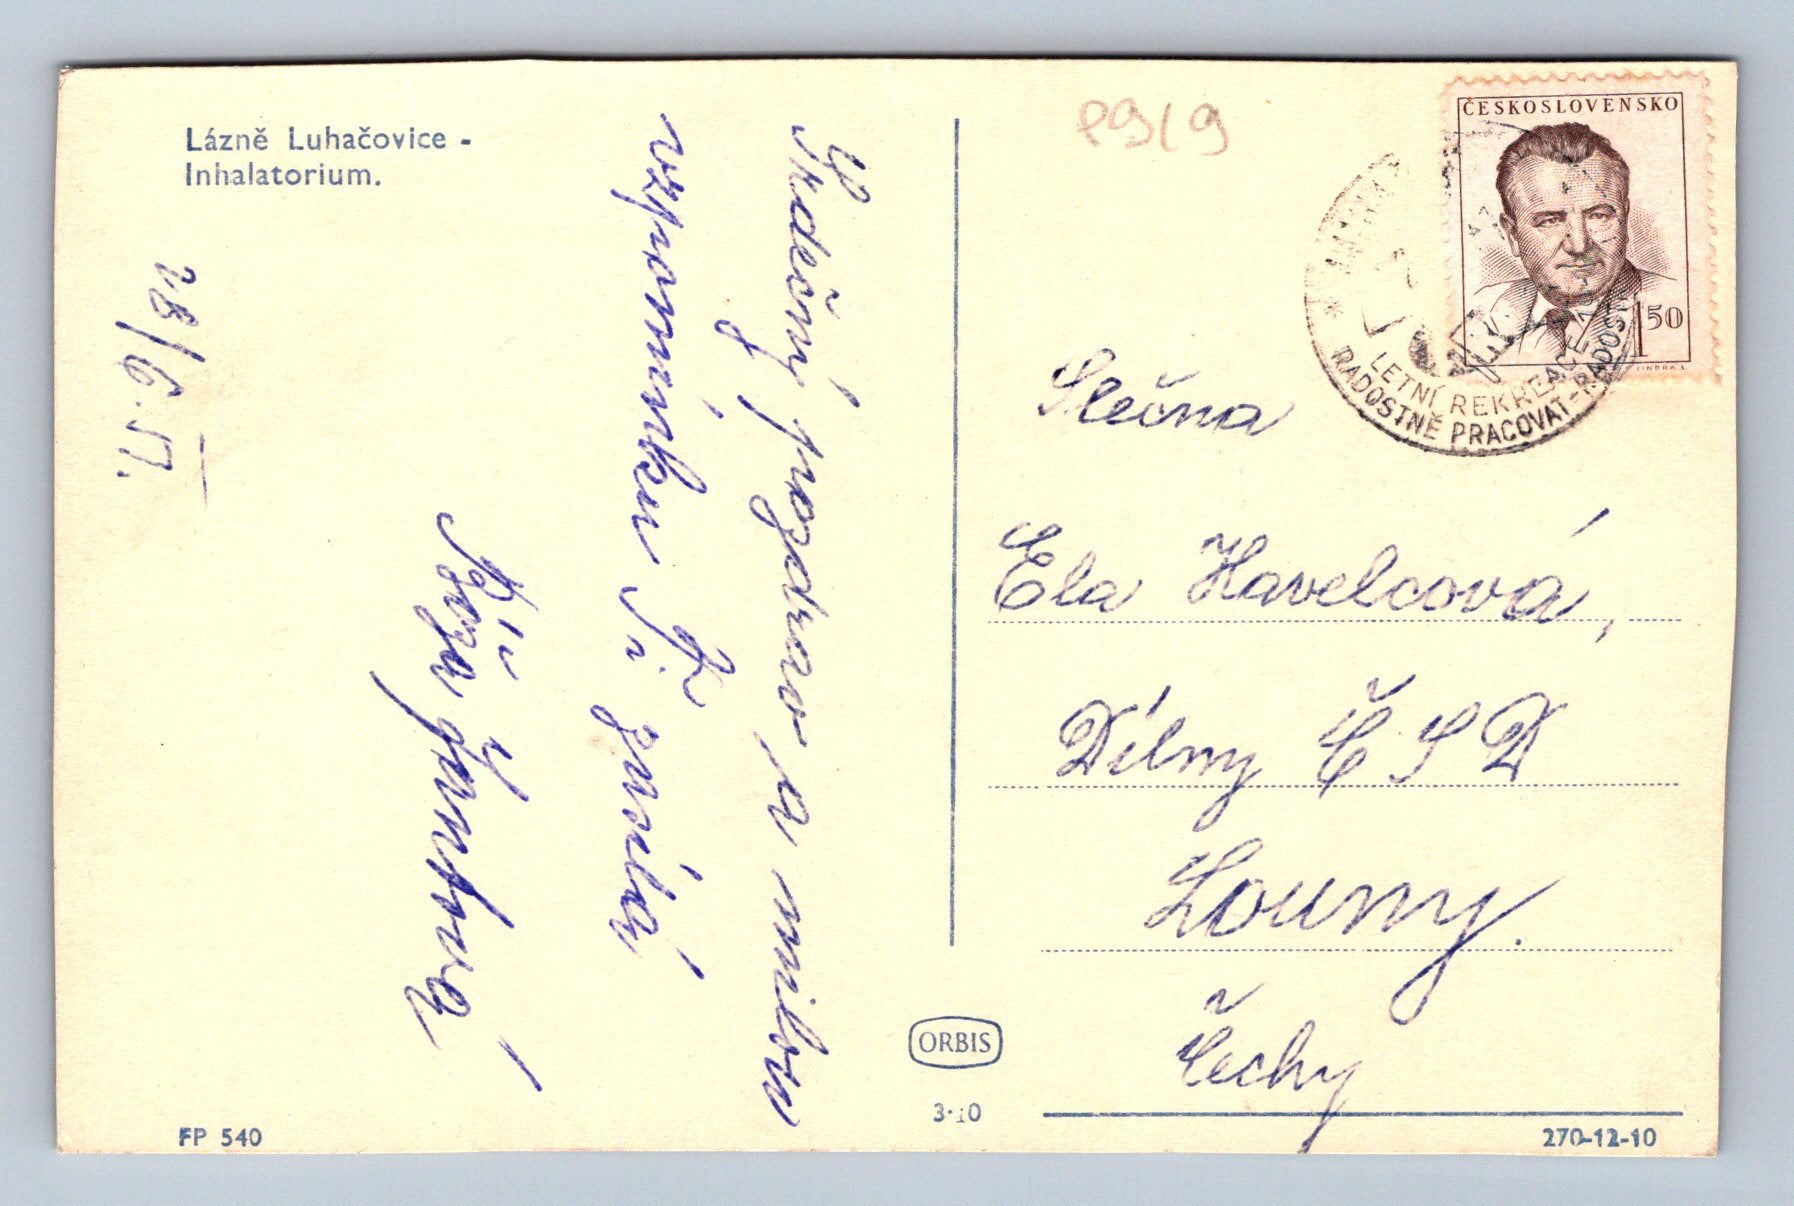 Lázně Luhačovice -
Inhalatorium.
28/6. 51.
Srdečný pozdrav a milou
vzpomínku Ti zasílá
P9/9
ČESKOSLOVENSKO
1 50
JINDRA S.
LETNÍ REKREACE
RADOSTNĚ PRACOVAT - RADOSTN
Slečna
Ela Havelcová,
Dílny Č S D
Louny.
Čechy
ORBIS
3·10
FP 540
270-12-10